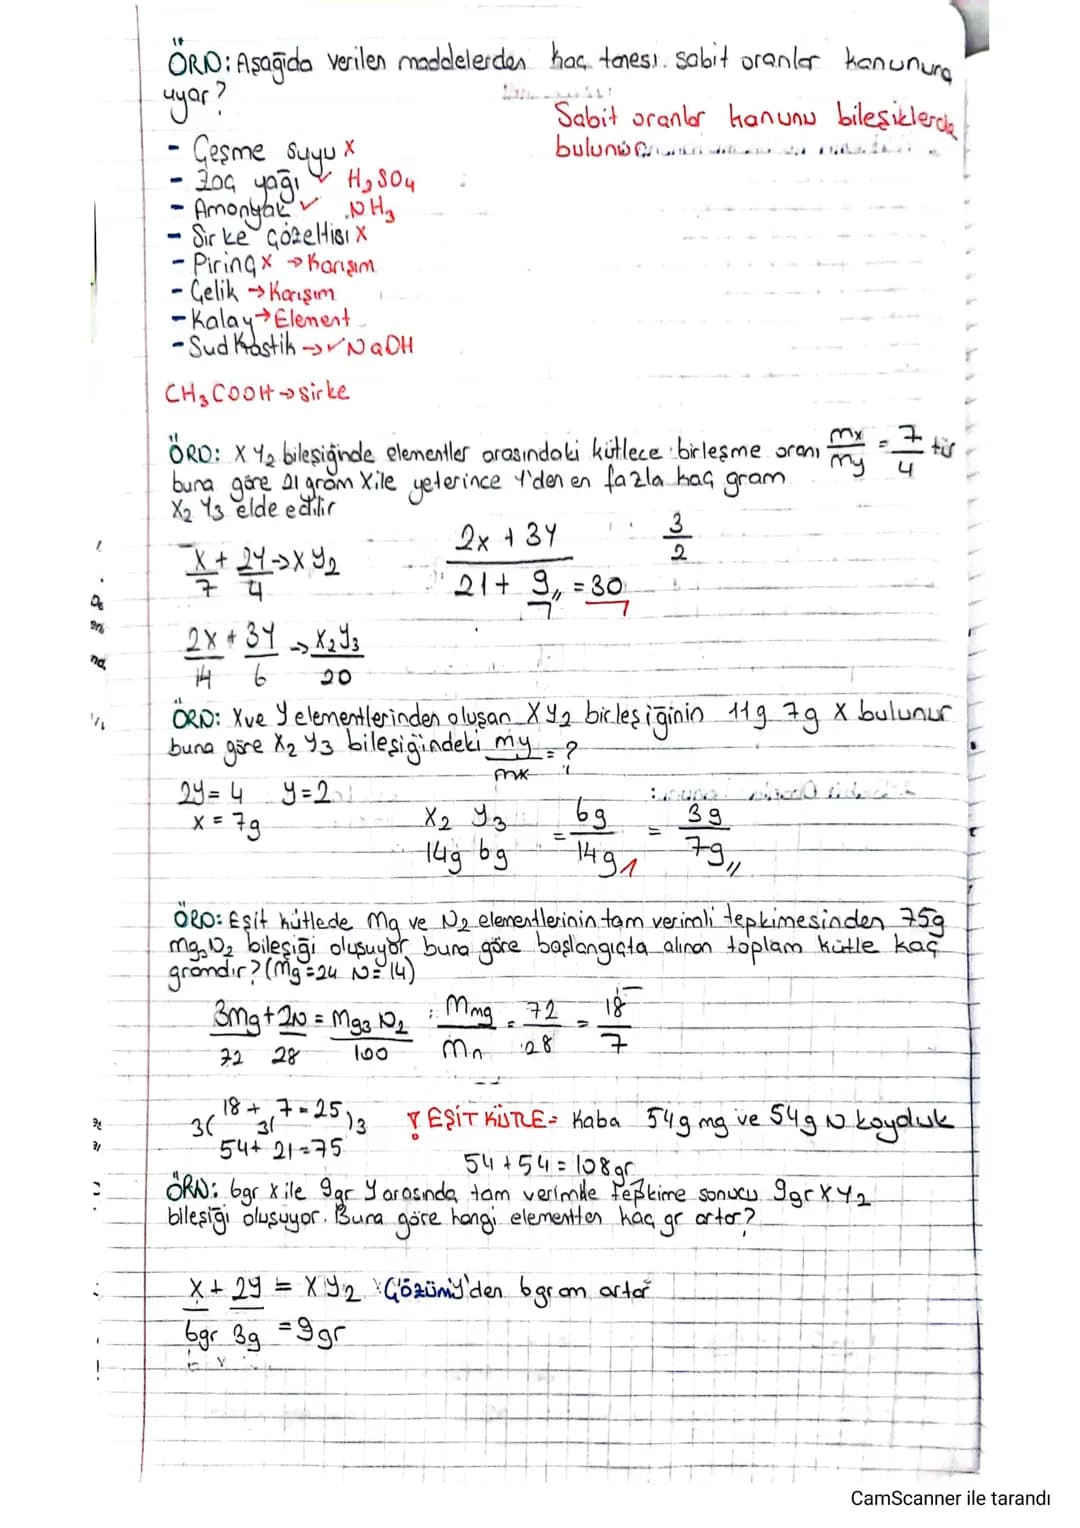 ÖRN: Aşağıda verilen maddelerden kaç tanesi sabit oranlar kanununa
uyar?
Sabit oranlar kanunu bileşiklerde
bulunur
- Çeşme suyu x
- Zaç yağı ✓ H₂SO₄
- Amonyak ✓ NH₃
- Sirke çözeltisi x
- Pirinç x → Karışım
- Çelik → Karışım
- Kalay → Element
- Sud Kostik → ✓ NaOH
CH₃COOH → sirke
ÖRN: XY₂ bileşiğinde elementler arasındaki kütlece birleşme oranı mx/my = 7/4 tür
buna göre 21 gram X ile yeterince Y'den en fazla kaç gram
X₂Y₃ elde edilir
X/7 + 2Y/4 → XY₂
2x + 3Y
21 + 9,, = 30
3/2
2X + 3Y → X₂Y₃
14 6 20
ÖRN: X ve Y elementlerinden oluşan XY₂ birleşiğinin 11g 7g X bulunur
buna göre X₂Y₃ bileşiğindeki my/mx = ?
2Y = 4 Y = 2
x = 7g
X₂ Y₃
14g 6g
= 6g/14g = 3g/7g,,
ÖRN: Eşit kütlede Mg ve N₂ elementlerinin tam verimli tepkimesinden 75g
Mg₃N₂ bileşiği oluşuyor buna göre başlangıçta alınan toplam kütle kaç
gramdır? (Mg=24 N=14)
3Mg + 2N = Mg₃N₂
72 28 100
Mmg/Mn = 72/28 = 18/7
18 + 7 = 25
3( 3( )3
54 + 21 = 75
EŞİT KÜTLE = Kaba 54g mg ve 54g N koyduk
54 + 54 = 108gr
ÖRN: 6gr X ile 9gr Y arasında tam verimle tepkime sonucu 9gr XY₂
bileşiği oluşuyor. Buna göre hangi elementten kaç gr artar?
X + 2Y = XY₂ Çözüm: Y'den 6 gram artar
6gr 3g = 9gr
CamScanner ile tarandı